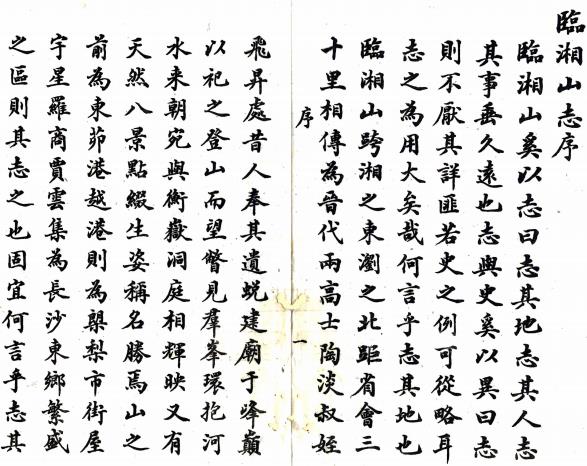 臨湘山志序
臨湘山奚以志曰志其地志其人志
其事垂久遠也志與史奚以異曰志
則不厭其詳匪若史之例可從略耳
志之為用大矣哉何言乎志其地也
臨湘山跨湘之東瀏之北距省會三
十里相傳為晉代兩高士陶淡叔姪
序
一
飛昇處昔人奉其遺蛻建廟于峰巔
以祀之登山而望瞥見羣峯環抱河
水来朝宛與衡嶽洞庭相輝映又有
天然八景點綴生姿稱名勝焉山之
前為東茆港越港則為㮚梨市街屋
宇星羅商賈雲集為長沙東鄉繁盛
之區則其志之也固宜何言乎志其